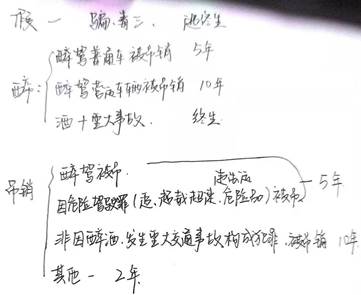 假一 骗、毒三、 逃终生
醉: 醉驾普通车被吊销 5年
醉驾营运车辆被吊销 10年
酒+重大事故. 终生
吊销 醉驾被吊. 5年
因危险驾驶罪(追、超载超速、危险品)被吊
非因醉酒.发生重大交通事故构成犯罪.被吊销 10年
其他一 2年.